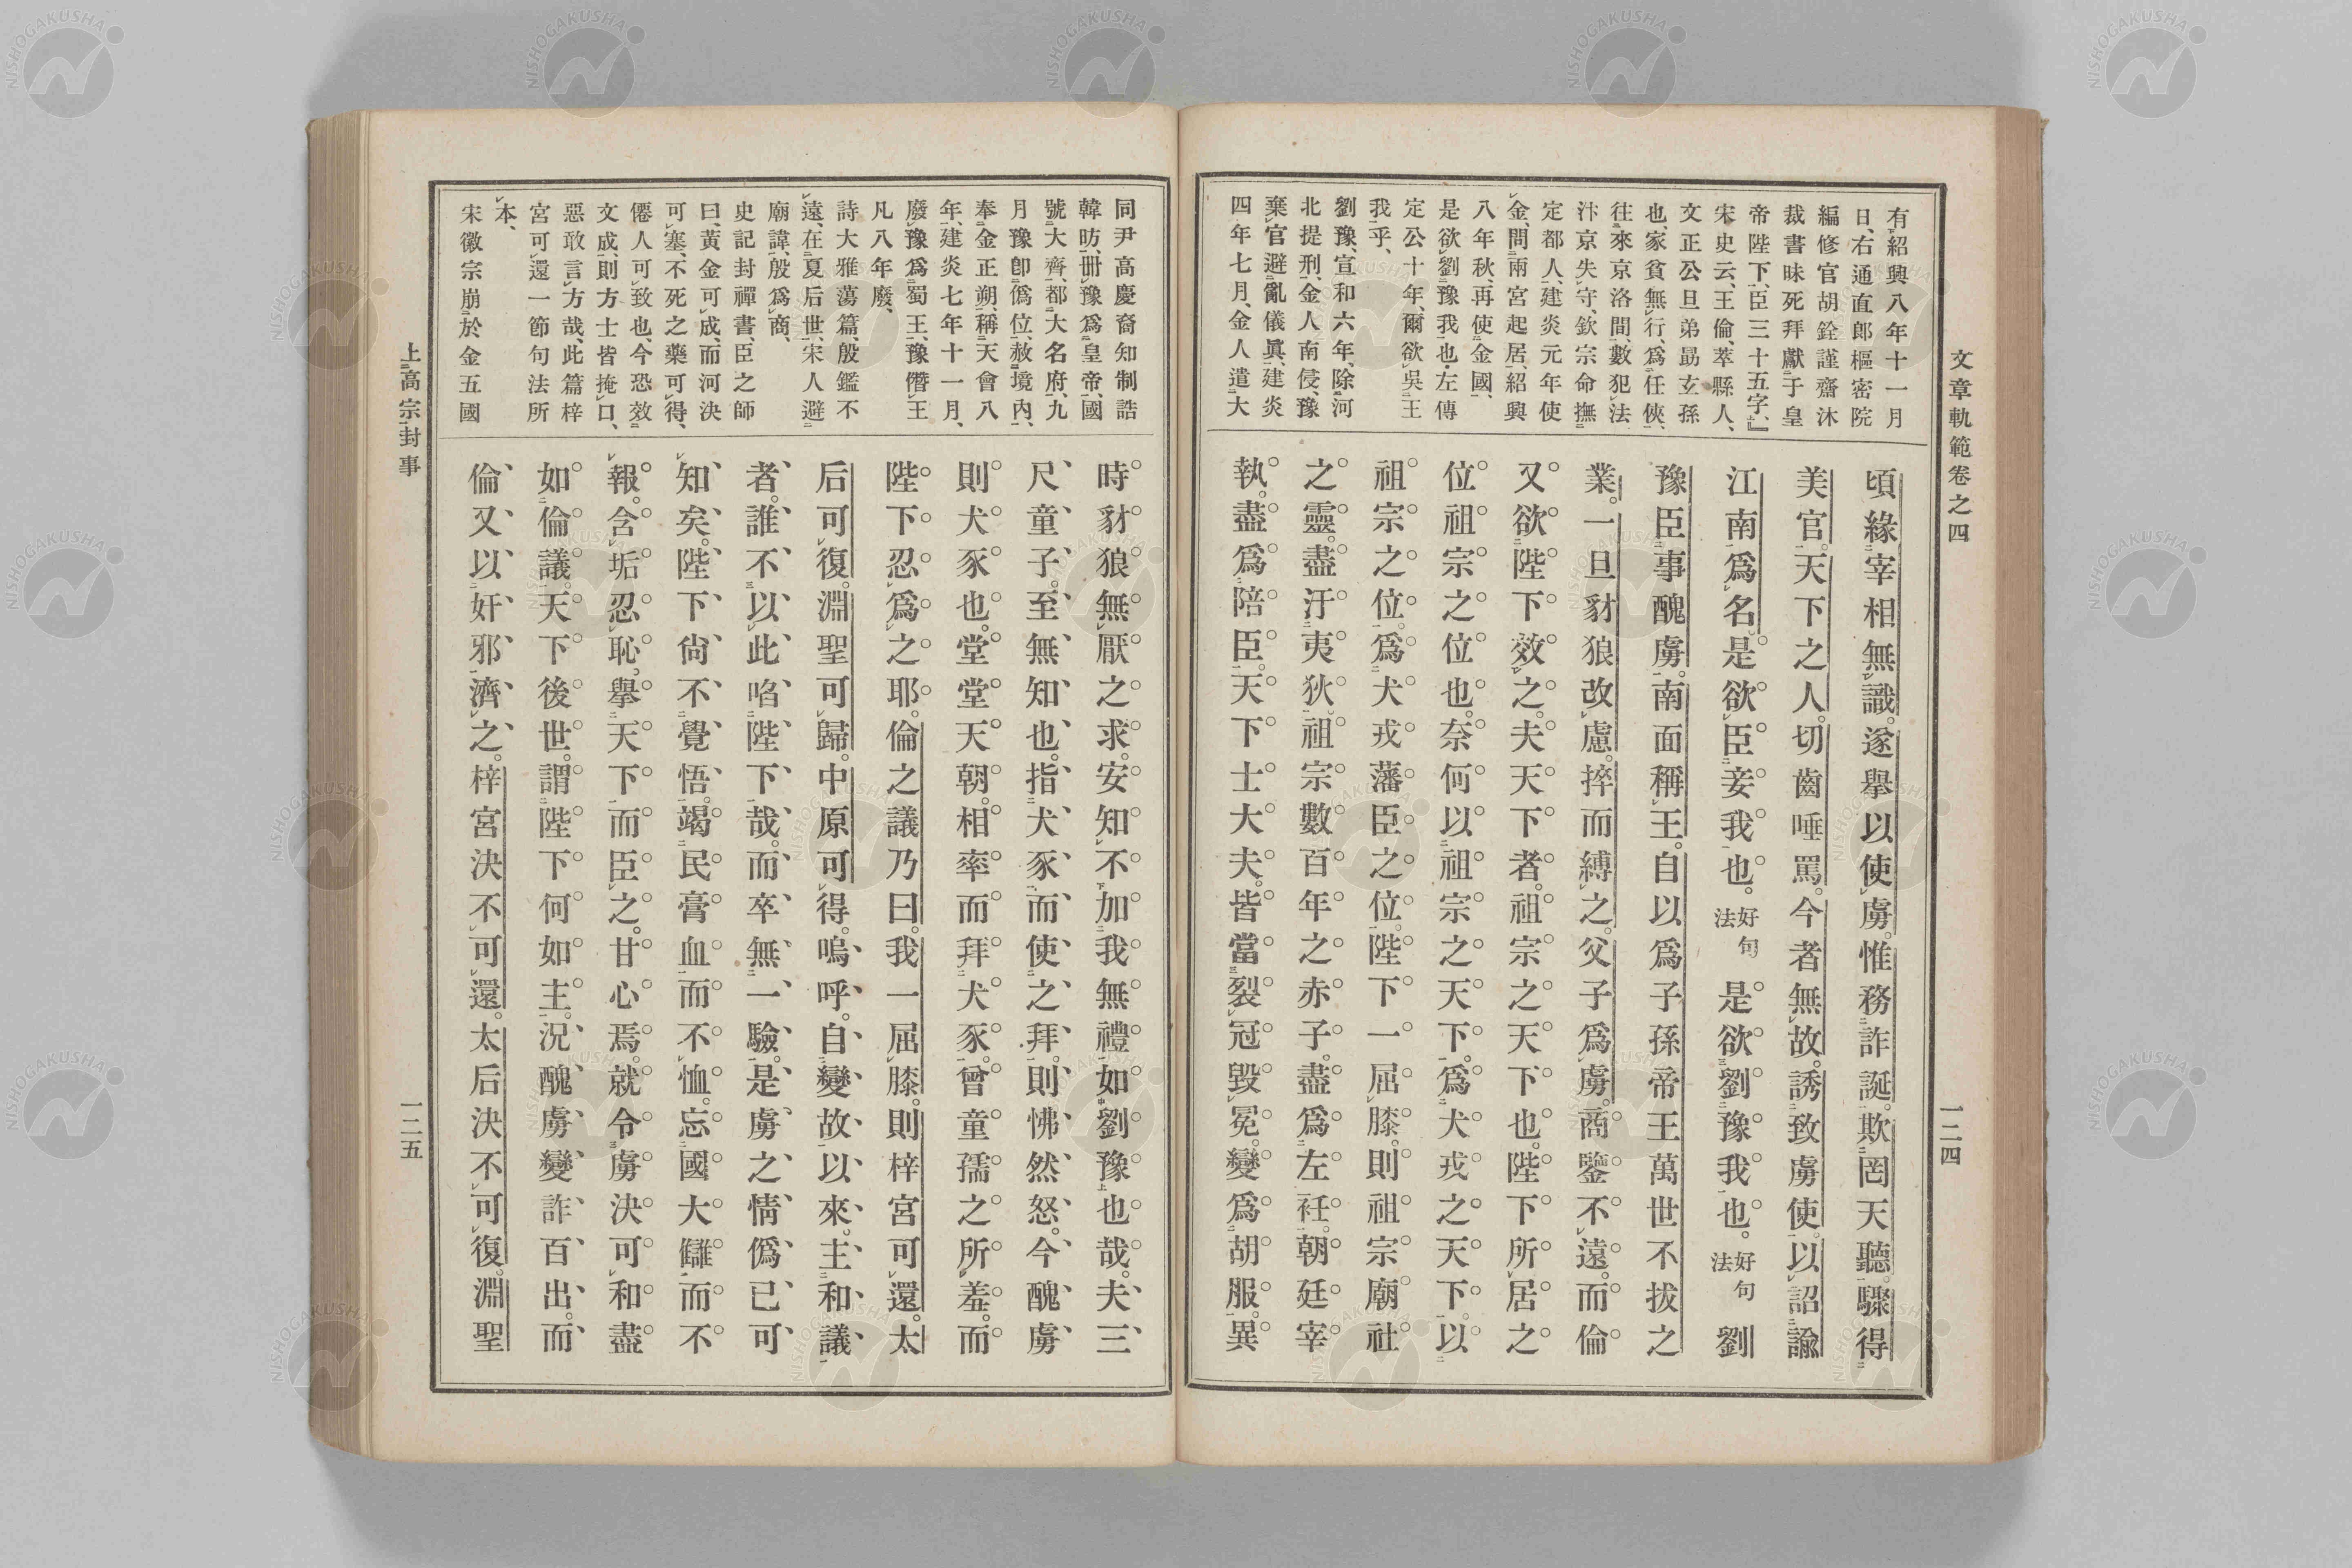 文章軌範卷之四
一二四
有紹興八年十一月
日、右通直郎樞密院
編修官胡銓謹齋沐
裁書昧死拜獻于皇
帝陛下、臣三十五字、』
宋史云、王倫、莘縣人、
文正公旦弟勗玄孫
也、家貧無行、爲任俠、
往來京洛間、數犯法、
汴京失守、欽宗命撫
定都人、建炎元年使
金、問兩宮起居、紹興
八年秋、再使金國、
是欲劉豫我也・左傳
定公十年、爾欲吳王
我乎、
劉豫、宣和六年、除河
北提刑、金人南侵、豫
棄官避亂儀眞、建炎
四年七月、金人遣大
頃緣宰相無識。遂擧以使虜。惟務詐誕。欺罔天聽。驟得
美官。天下之人。切齒唾罵。今者無故。誘致虜使。以詔諭
江南爲名。是欲臣妾我也。好句法 是欲劉豫我也。好句法 劉
豫臣事醜虜。南面稱王。自以爲子孫帝王萬世不拔之
業。一旦豺狼改慮。捽而縛之。父子爲虜。商鑒不遠。而倫
又欲陛下效之。夫天下者。祖宗之天下也。陛下所居之
位。祖宗之位也。奈何以祖宗之天下。爲犬戎之天下。以
祖宗之位。爲犬戎藩臣之位。陛下一屈膝。則祖宗廟社
之靈。盡汙夷狄。祖宗數百年之赤子。盡爲左衽。朝廷宰
執。盡爲陪臣。天下士大夫。皆當裂冠毀冕。變爲胡服。異
同尹高慶裔知制誥
韓昉、冊豫爲皇帝、國
號大齊、都大名府、九
月豫卽僞位、赦境內、
奉金正朔、稱天會八
年、建炎七年十一月、
廢豫爲蜀王、豫僭王
凡八年廢、
詩大雅蕩篇、殷鑑不
遠、在夏后世、宋人避
廟諱、殷爲商、
史記封禪書、臣之師
曰、黃金可成、而河決
可塞、不死之藥可得、
僊人可致也、今恐效
文成、則方士皆掩口、
惡敢言方哉、此篇梓
宮可還一節句法所
本、
宋徽宗崩於金五國
時豺狼無厭之求。安知不加我無禮如劉豫也哉。夫三
尺童子。至無知也。指犬豕而使之拜。則怫然怒。今醜虜
則犬豕也。堂堂天朝。相率而拜犬豕。曾童孺之所羞。而
陛下忍爲之耶。倫之議乃曰。我一屈膝。則梓宮可還。太
后可復。淵聖可歸。中原可得。嗚呼。自變故以來。主和議
者。誰不以此啗陛下哉。而卒無一驗。是虜之情僞已可
知矣。陛下尙不覺悟。竭民膏血而不恤。忘國大讎而不
報。含垢忍恥。擧天下而臣之。甘心焉。就令虜決可和盡
如倫議。天下後世。謂陛下何如主。況醜虜變詐百出。而
倫又以奸邪濟之。梓宮決不可還。太后決不可復。淵聖
上高宗封事
一二五